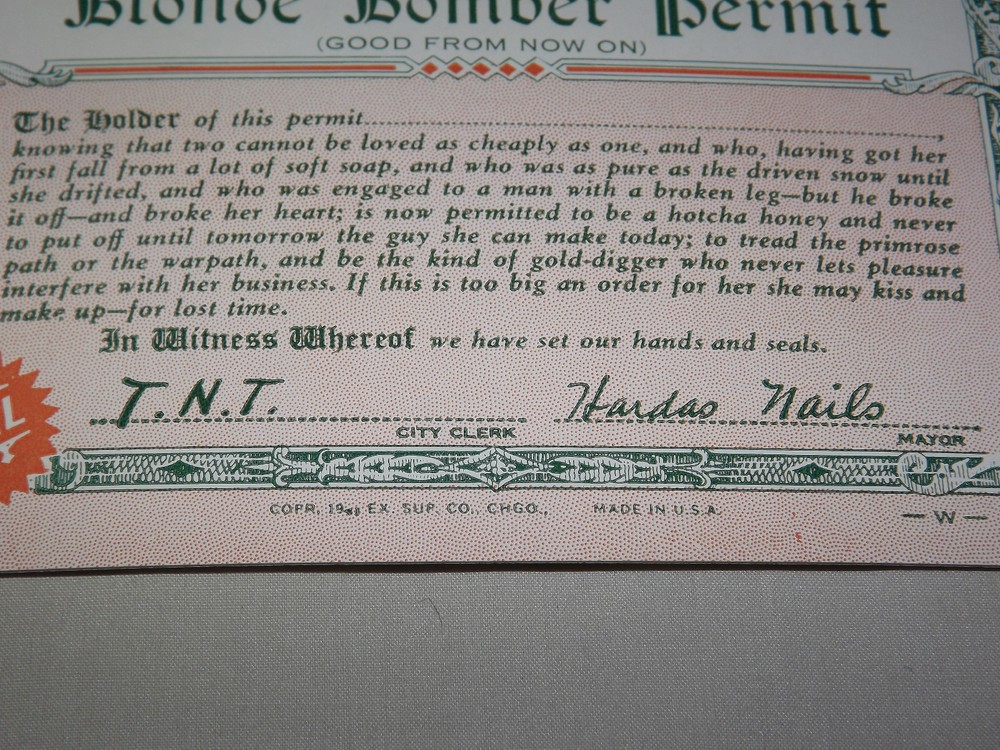 Blonde Bomber Permit
(GOOD FROM NOW ON)
The Holder of this permit........................................,
knowing that two cannot be loved as cheaply as one, and who, having got her
first fall from a lot of soft soap, and who was as pure as the driven snow until
she drifted, and who was engaged to a man with a broken leg—but he broke
it off—and broke her heart; is now permitted to be a hotcha honey and never
to put off until tomorrow the guy she can make today; to tread the primrose
path or the warpath, and be the kind of gold-digger who never lets pleasure
interfere with her business. If this is too big an order for her she may kiss and
make up—for lost time.
In Witness Whereof we have set our hands and seals.
T.N.T. Hardas Nails
CITY CLERK MAYOR
COPR. EX. SUP. CO., CHGO., MADE IN U.S.A.
— W —